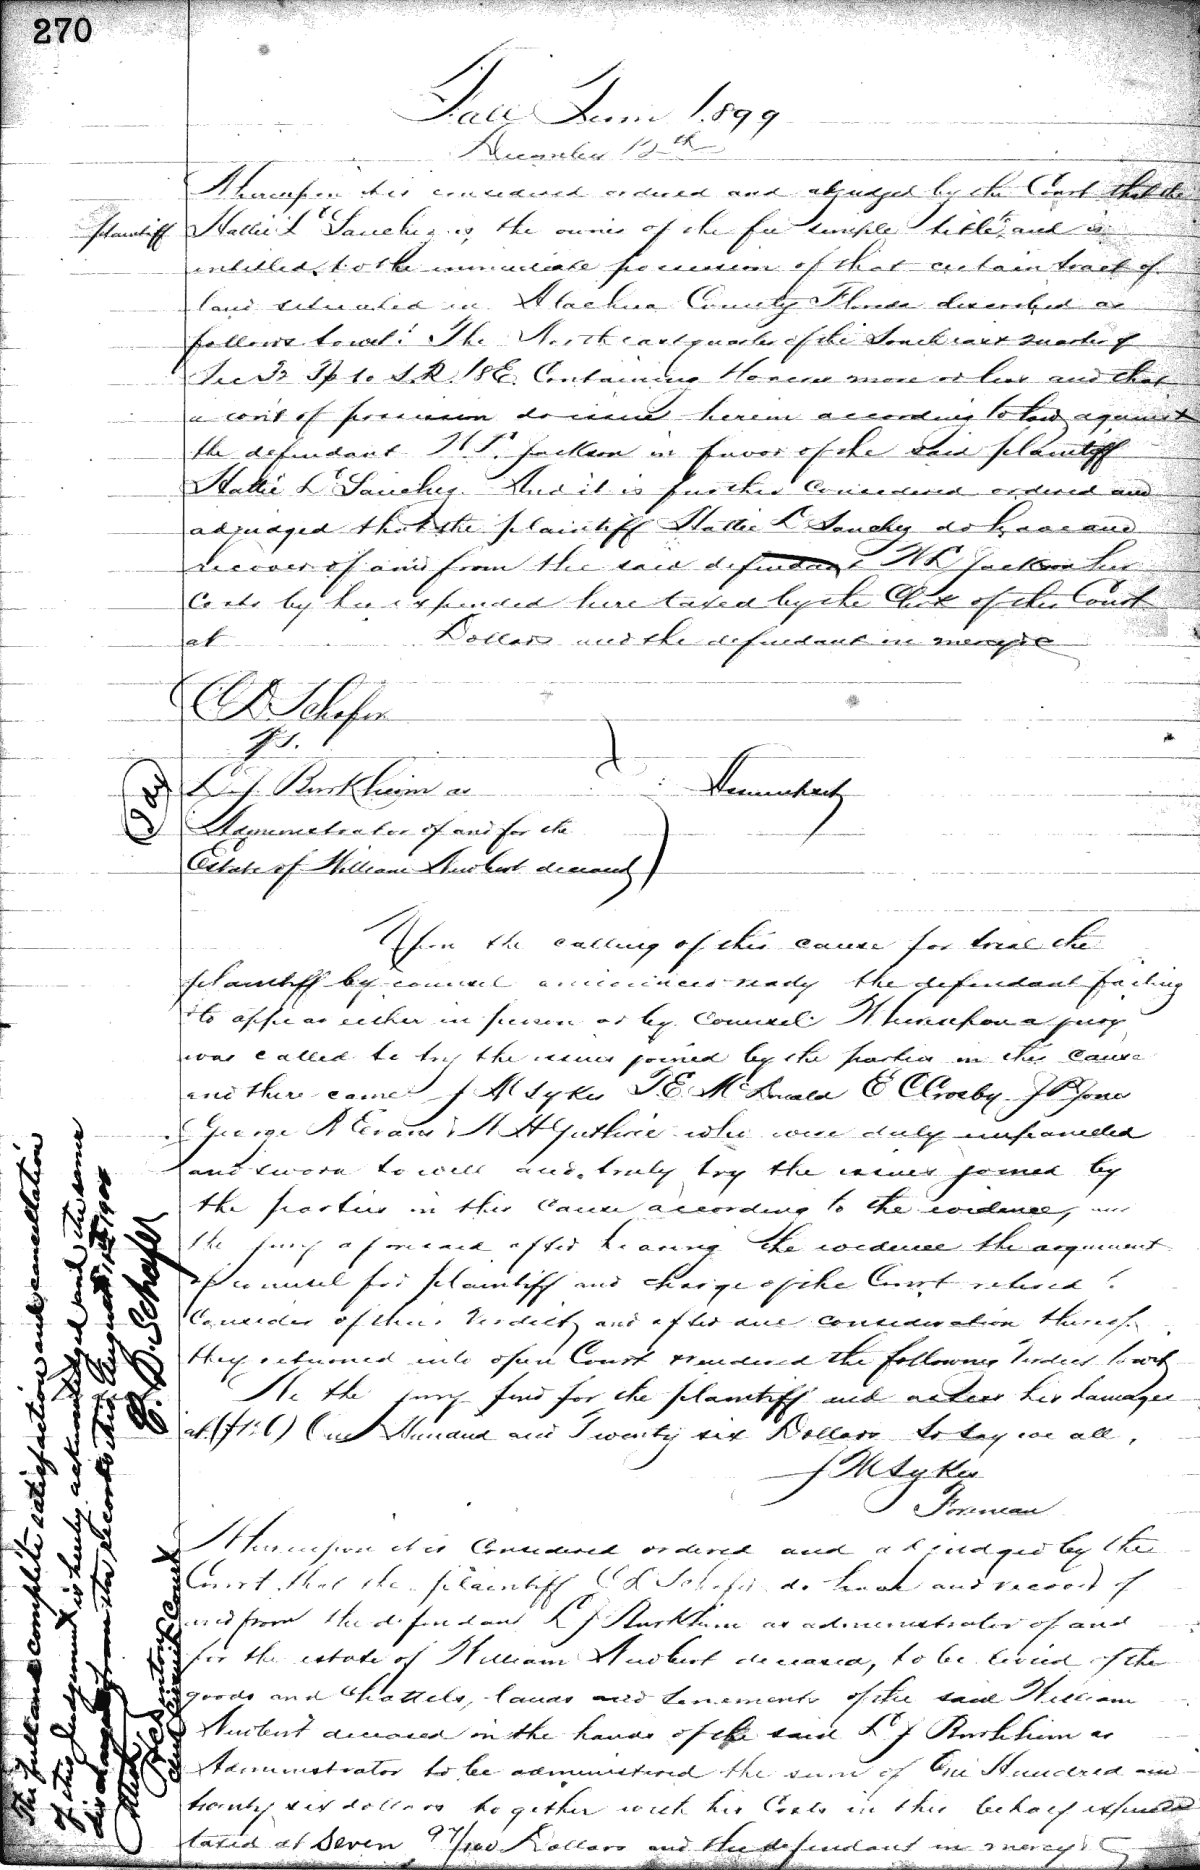 270
Fall Term 1899
December 12th
Whereupon it is considered ordered and adjudged by the Court that the
plaintiff Hattie L Sanchez is the owner of the fee simple title and is
entitled to the immediate possession of that certain tract of
land situated in Alachua County Florida described as
follows towit: The North east quarter of the South east quarter of
Sec Tp 10 S.R. 18 E. Containing acres more or less and that
a writ of possession do issue herein according to law against
the defendant Jackson in favor of the said plaintiff
Hattie L Sanchez. And it is further considered ordered and
adjudged that the plaintiff Hattie L Sanchez do have and
recover of and from the said defendant Jackson her
Costs by her expended here taxed by the Clerk of this Court
at Dollars and the defendant in mercy &c
C D Schafer
vs.
L J Burkhim as
Administrator of and for the
Estate of William deceased
Assumpsit
Upon the calling of this cause for trial the
plaintiff by counsel announces ready the defendant failing
to appear either in person or by Counsel. Whereupon a jury
was called to try the issues joined by the parties in this cause
and there came J M Sykes T E McDonald E C Crosby J P Jones
George R Evans W H Guthrie who were duly empanelled
and sworn to well and truly try the issues joined by
the parties in this cause according to the evidence, and
the jury aforesaid after hearing the evidence the argument
of counsel for plaintiff and charge of the Court retired to
Consider of their Verdict and after due consideration thereof
they returned into open Court rendered the following Verdict towit
We the jury find for the plaintiff and assess his damages
at (126) One Hundred and Twenty six Dollars So say we all,
J M Sykes
Foreman
Whereupon it is Considered ordered and adjudged by the
Court that the plaintiff C D Schafer do have and recover of
and from the defendant L J Burkhim as administrator of and
for the estate of William deceased, to be levied of the
goods and Chattels, lands and tenements of the said William
deceased in the hands of the said L J Burkhim as
Administrator to be administered the sum of One Hundred and
twenty six dollars together with his Costs in this behalf expended
taxed at Seven 97/100 Dollars and the defendant in mercy &c
The full and complete satisfaction and cancellation
of this Judgment is hereby acknowledged and the same
discharged from the records this August 1900
C. D. Schafer
Attest
Clerk Circuit Court